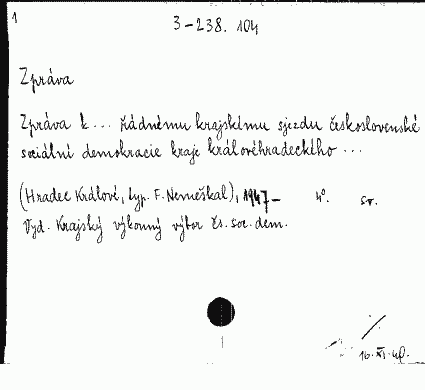 1
3-238.104
Zpráva
Zpráva k... řádnému krajskému sjezdu československé
sociální demokracie kraje královéhradeckého ...
(Hradec Králové, typ. F. Nemeškal), 1947- 4°. sv.
Vyd. Krajský výkonný výbor čs. soc. dem.
16. XI. 48.